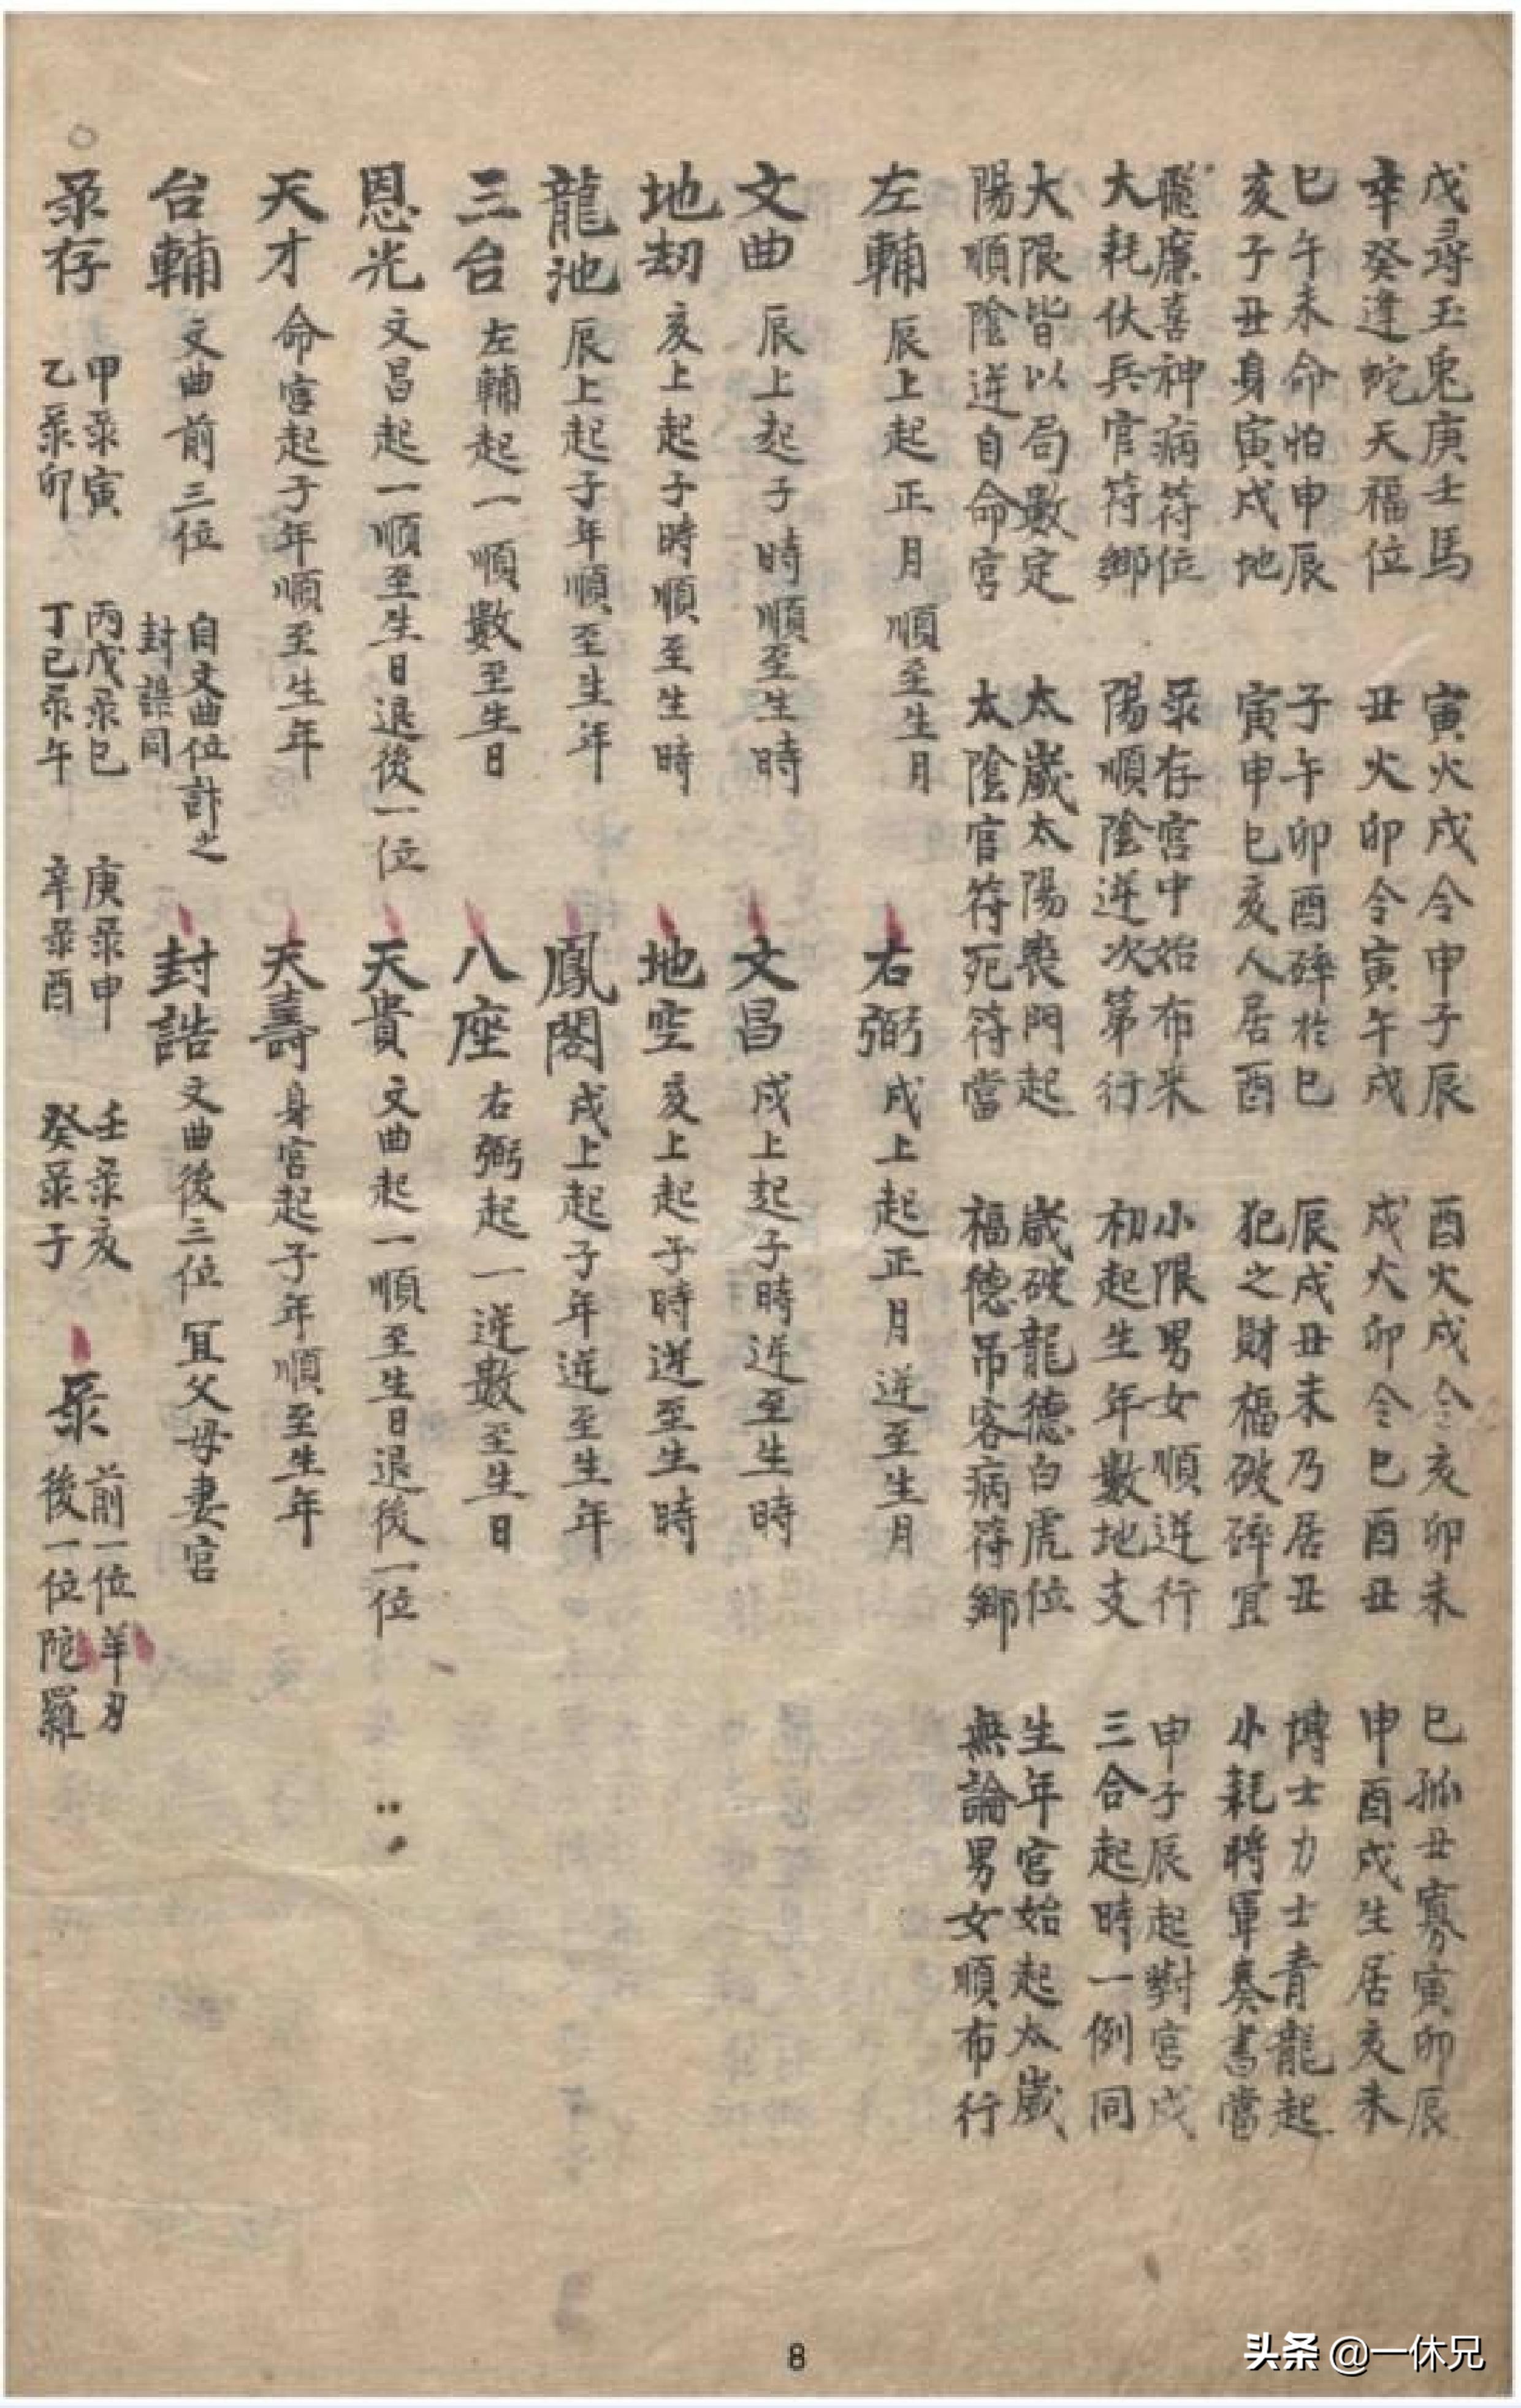 戊尋玉兎庚壬馬　寅火戌令申子辰　酉火戌令亥卯未　巳孤丑寡寅卯辰
辛癸逢蛇天福位　丑火卯令寅午戌　戌火卯令巳酉丑　申酉戌生居亥未
巳午未命怕申辰　子午卯酉碎於巳　辰戌丑未乃居丑　博士力士青龍起
亥子丑身寅戌地　寅申巳亥人居酉　犯之財福破碎宜　小耗將軍奏書當
飛廉喜神病符位　彔存宮中始布来　小限男女順逆行　申子辰起對宮戌
大耗伏兵官符鄉　陽順陰逆次第行　初起生年數地支　三合起時一例同
大限皆以局數定　太歲太陽喪門起　歲破龍德白虎位　生年宮始起太歲
陽順陰逆自命宮　太陰官符死符當　福德吊客病符鄉　無論男女順布行
左輔 辰上起正月順至生月　右弼 戌上起正月逆至生月
文曲 辰上起子時順至生時　文昌 戌上起子時逆至生時
地劫 亥上起子時順至生時　地空 亥上起子時逆至生時
龍池 辰上起子年順至生年　鳳閣 戌上起子年逆至生年
三台 左輔起一順數至生日　八座 右弼起一逆數至生日
恩光 文昌起一順至生日退後一位　天貴 文曲起一順至生日退後一位
天才 命宮起子年順至生年　天壽 身宮起子年順至生年
台輔 文曲前三位 自文曲位計之 封誥同　封誥 文曲後三位 宜父母妻宮
彔存 甲彔寅 乙彔卯 丙戊彔巳 丁己彔午 庚彔申 辛彔酉 壬彔亥 癸彔子　彔 前一位羊刃 後一位陀羅
8
头条 @一休兄